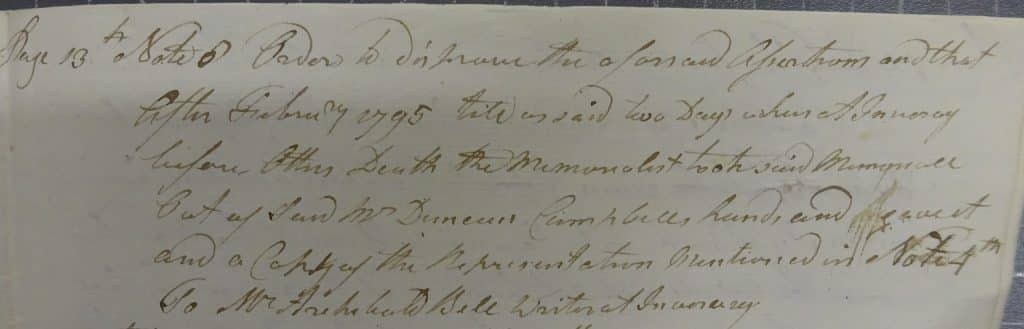 Page 13th Note 6 Order to disprove the aforsaid Assertions and that
After Februry 1795 till as said two Days when at Inveray
before Other Death the Memorialist took said Memoriall
Out of Said Mr Duncan Campbells hands and gave it
and a Copy of the Representation Mentioned in Note 4th
To Mr Archibald Bell Writer at Inveray